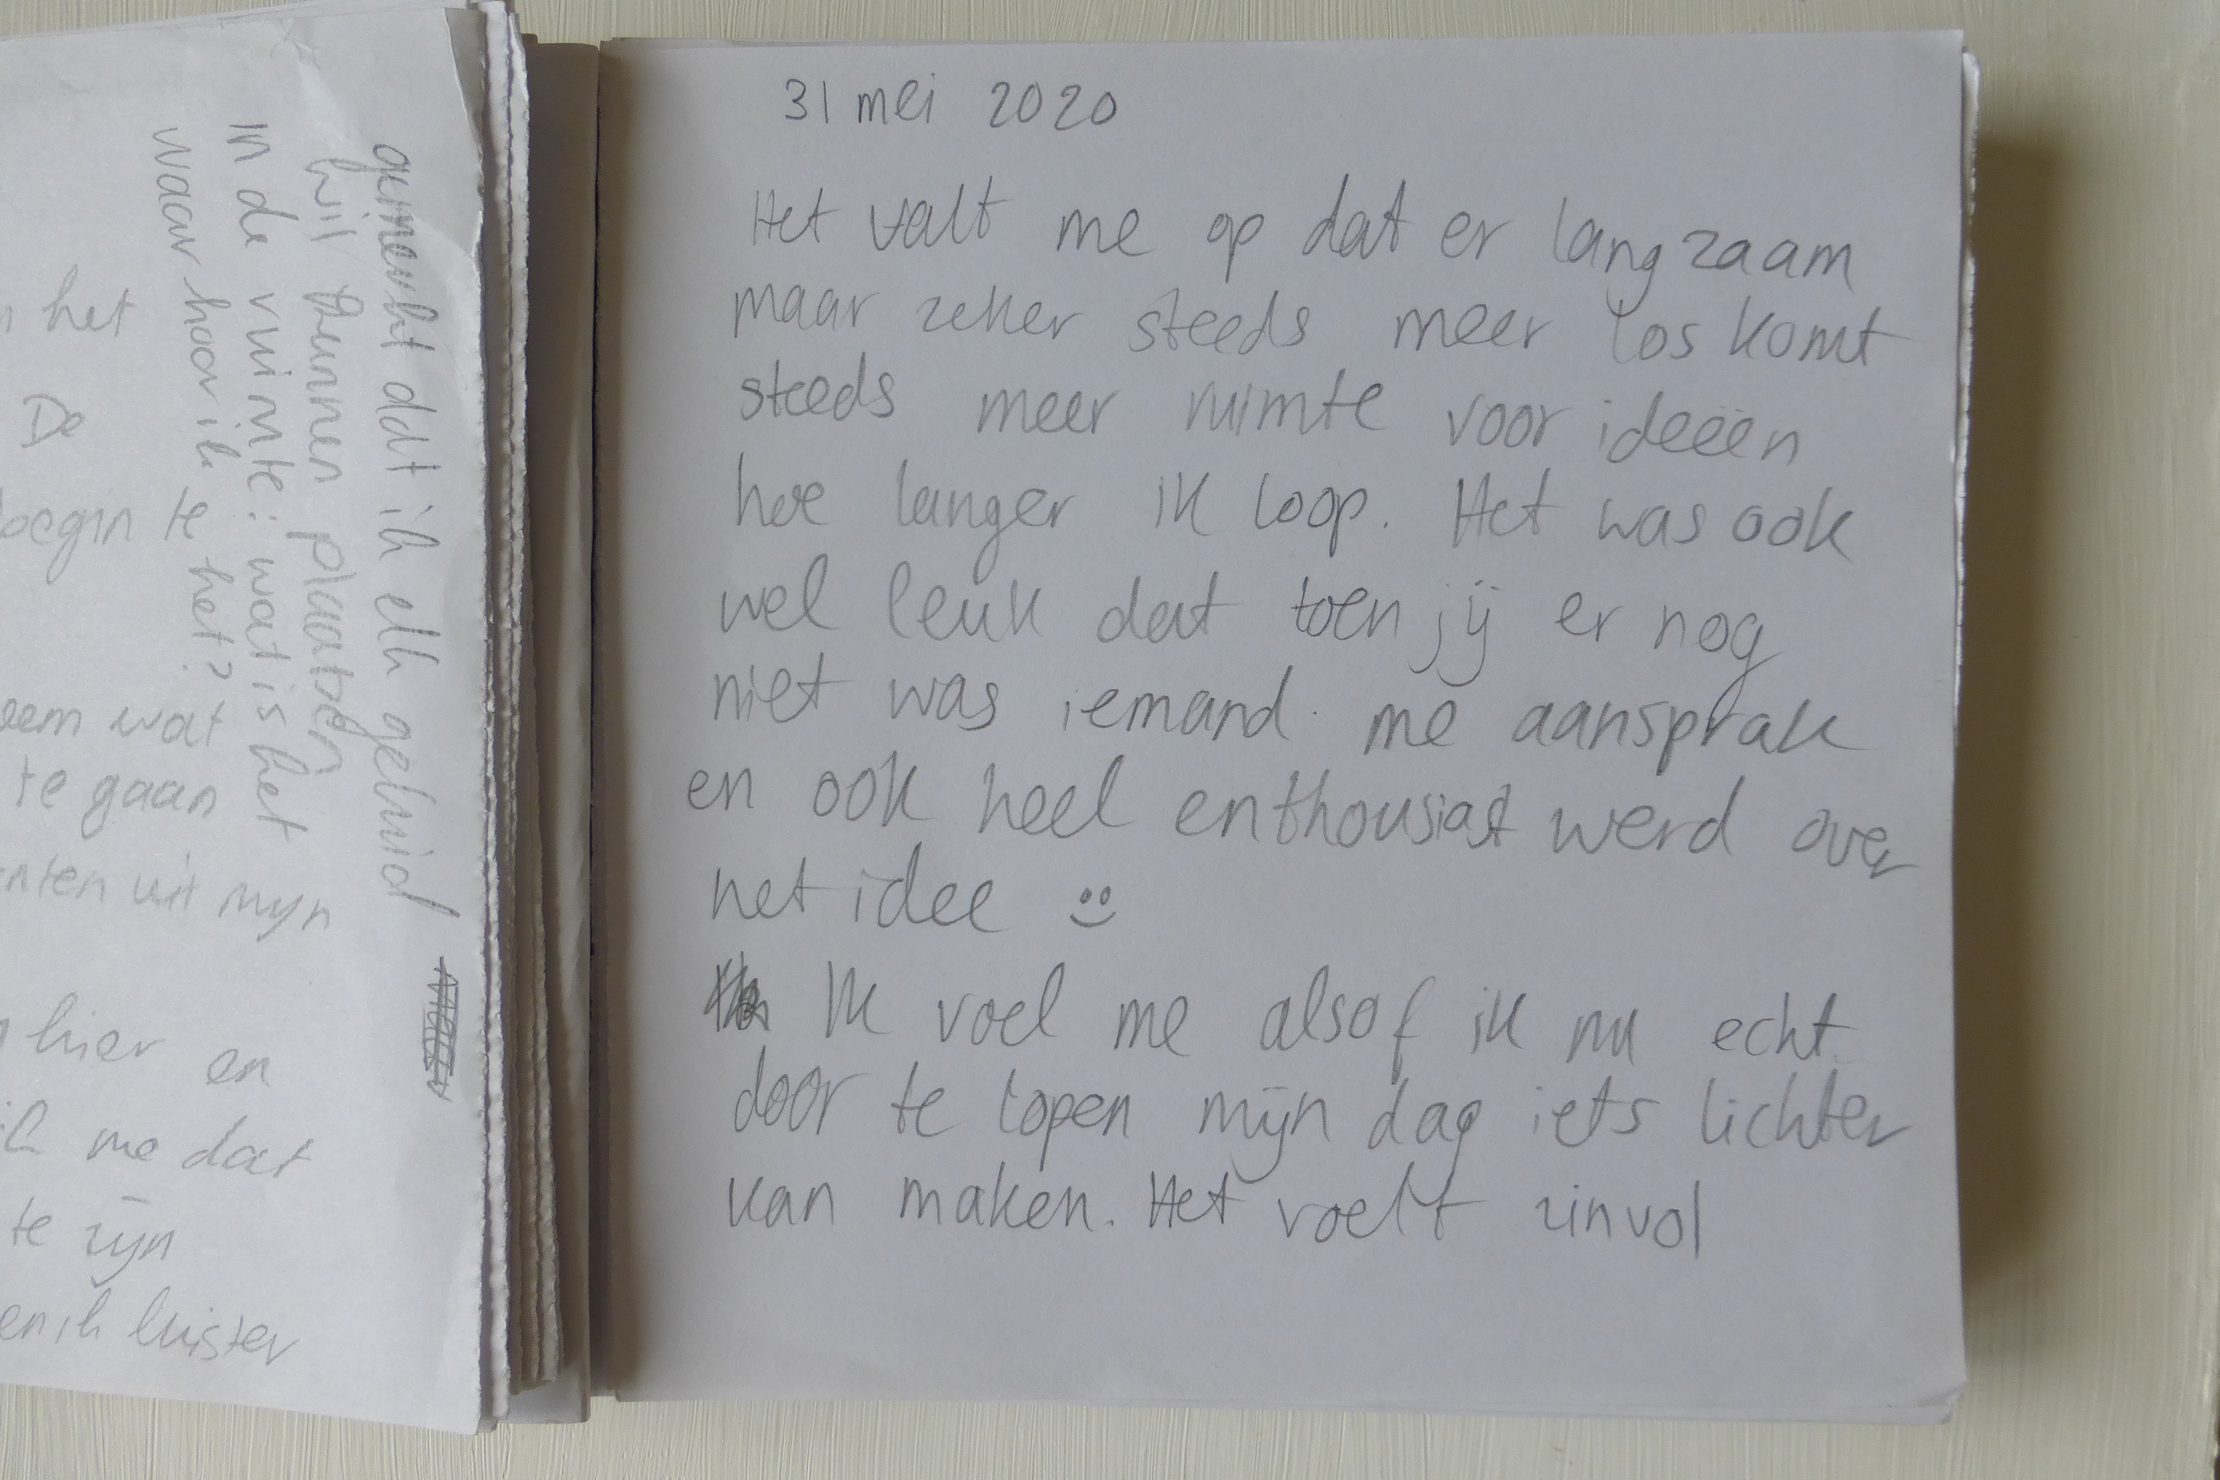 n het
De
begin te
eem wat
te gaan
nten uit mijn
hier en
ik me dat
te zijn
en ik luister
gemerkt dat ik elk geluid
wil kunnen plaatsen
in de ruimte: wat is het
waar hoor ik het?
31 mei 2020
Het valt me op dat er langzaam
maar zeker steeds meer los komt
steeds meer ruimte voor ideeën
hoe langer ik loop. Het was ook
wel leuk dat toen jij er nog
niet was iemand me aansprak
en ook heel enthousiast werd over
het idee :)
Ik voel me alsof ik nu echt
door te lopen mijn dag iets lichter
kan maken. Het voelt zinvol